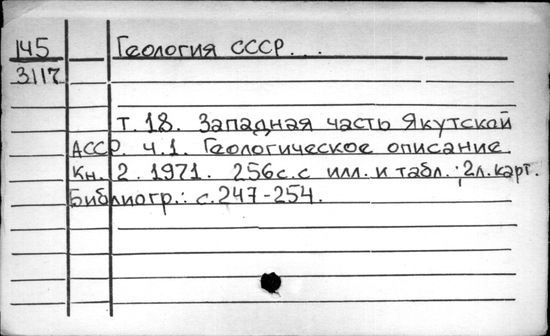 145 Геология СССР...
3117
т. 18. Западная часть Якутской
АССР. ч.1. Геологическое описание.
Кн. 2. 1971. 256с. с илл. и табл.; 2л. карт.
Библиогр.: с. 247-254.